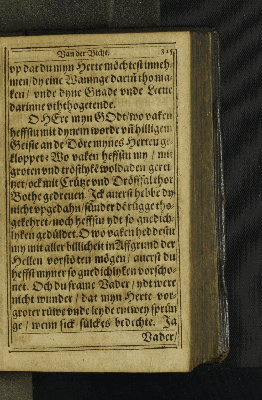 Van der Bicht. 215
vp dat du myn Herte möchtest inneh-
men/ dy eine Waninge darin tho ma-
ken/ vnde dyne Gnade vnde Leeue
darinne vththogetende.
O HEre myn GOdt/ wo vaken
heffstu mit dynem worde vñ hilligem
Geiste an de Döre mynes Herten ge-
kloppet? Wo vaken heffstu my/ mit
groten vnd tröstlyke woldaden gerei
tzet/ ock mit Crütze vnd Dröffsal thor
Bothe gedreuen. Ick auerst hebbe dy
nicht vpgedahn/ sünder dē rügge tho-
gekehret/ noch heffstu ydt so gnedich-
lyken geduldet. O wo vaken heddestu
my mit aller billicheit in Affgrund der
Hellen vorstöten mögen/ auerst du
heffst myner so gnedichlyken vorscho-
net. Och du frame Vader/ ydt were
nicht wunder/ dat myn Herte vor
groter rüwe vnde leyde entwey sprün
ge/ wenn sick sülckes bedechte. Ja
Vader/